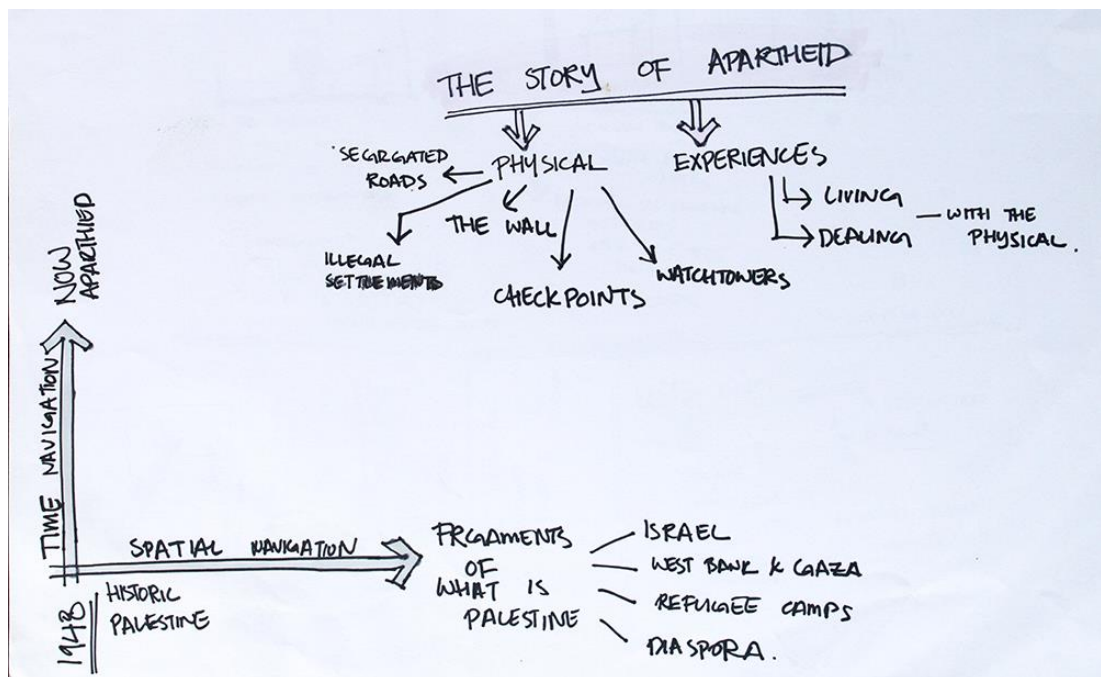 THE STORY OF APARTHEID
PHYSICAL
EXPERIENCES
SEGRGATED
ROADS
THE WALL
ILLEGAL
SETTLEMENTS
CHECKPOINTS
WATCHTOWERS
LIVING
DEALING
WITH THE
PHYSICAL.
NOW
APARTHIED
TIME NAVIGATION
1948
SPATIAL NAVIGATION
HISTORIC
PALESTINE
FRGAMENTS
OF
WHAT IS
PALESTINE
ISRAEL
WEST BANK & GAZA
REFUGEE CAMPS
DIASPORA.